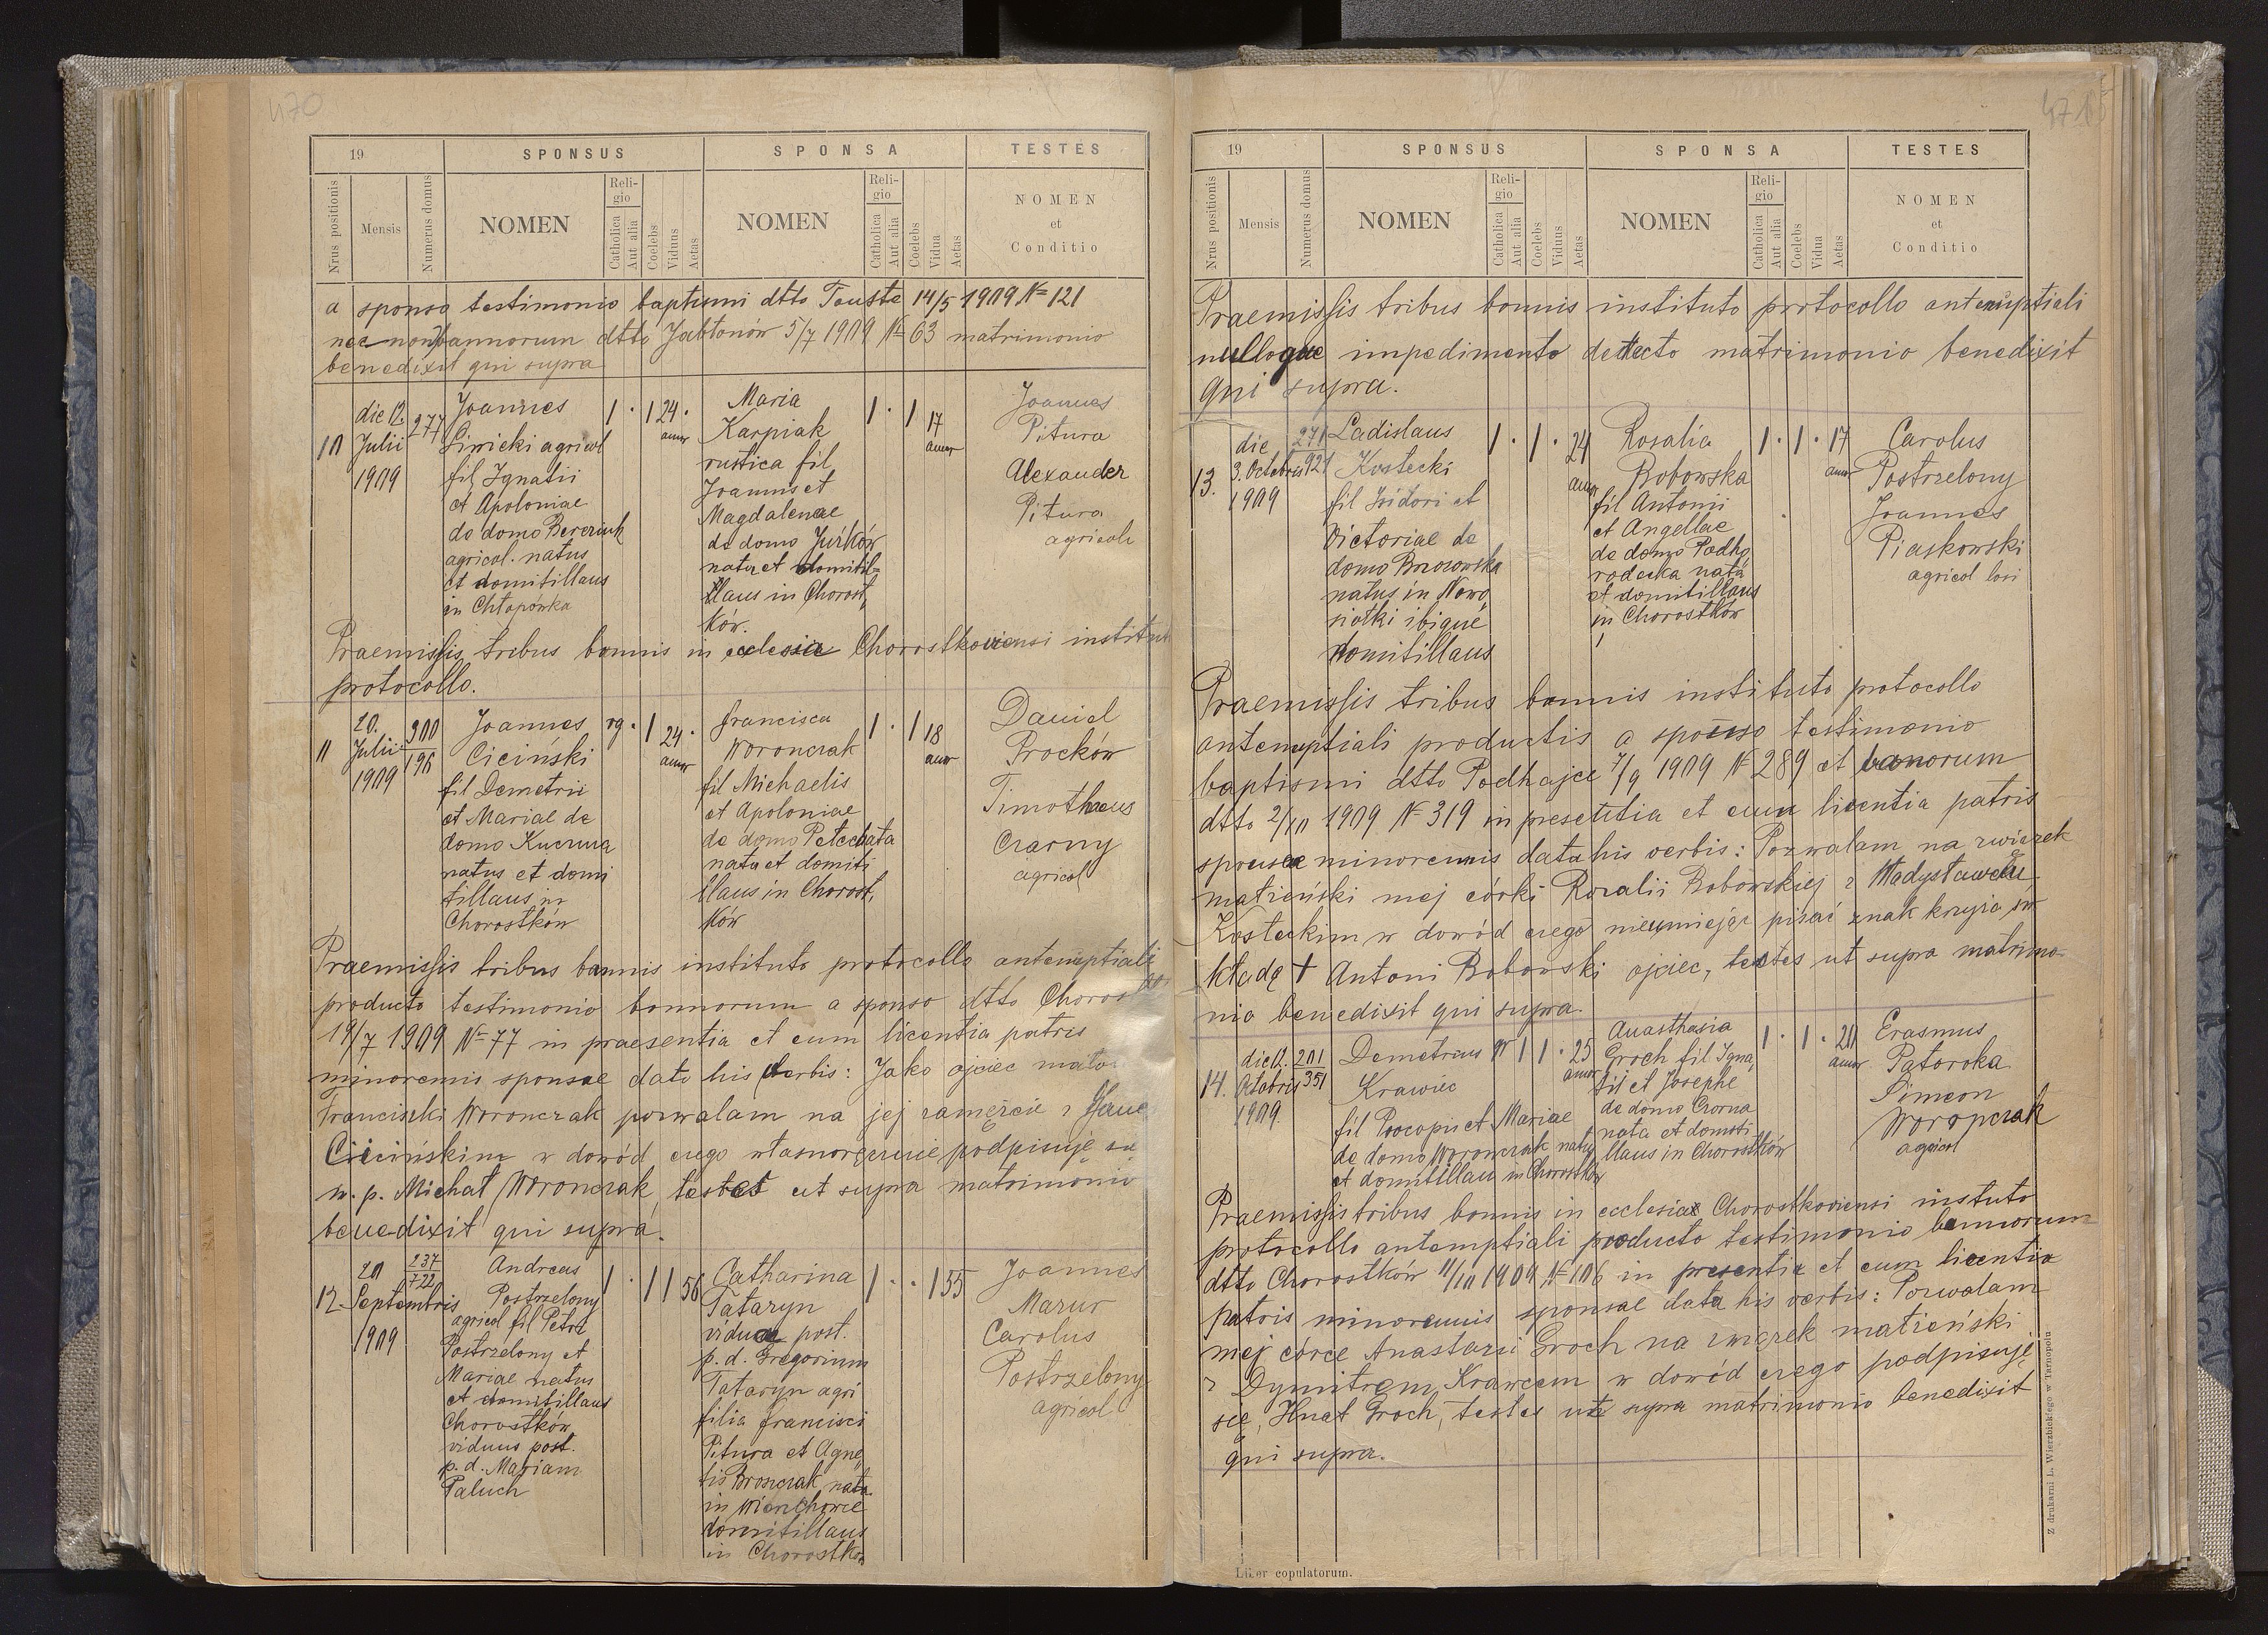 470
19
SPONSUS
SPONSA
TESTES
Nrus positionis
Mensis
Numerus domus
NOMEN
Religio
Catholica
Aut alia
Coelebs
Viduus
Aetas
NOMEN
Religio
Catholica
Aut alia
Coelebs
Vidua
Aetas
NOMEN
et
Conditio
a sponso testimonio baptismi dtto Touste 14/5 1909 № 121
nec non bannorum dtto Jabłonów 5/7 1909 № 63 matrimonio
benedixit qui supra
10
die 12.
Julii
1909
277
Joannes
Liwicki agricol
fil Ignatii
et Apoloniae
de domo Bereziuk
agricol. natus
et domitillaus
in Chłopówka
1 . 1 24.
annor
Maria
Karpiak
rustica fil
Joannis et
Magdalenae
de domo Jurków
nata et domitil=
llaus in Chorost,
ków.
1 . 1 17
annor
Joannes
Pitura
Alexander
Pitura
agricoli
Praemissis tribus bannis in ecclesia Chorostkoviensi institut
protocollo.
11
20.
Julii
1909
900
196
Joannes
Ciciński
fil Demetrii
et Mariae de
domo Kuczma
natus et domi
tillaus in
Chorostków
rg . 1 24.
annor
Francisca
Woronczak
fil Michaelis
et Apoloniae
de domo Petechata
nata et domiti
llaus in Chorost,
ków
1 . 1 18
annor
Daniel
Proćków
Timothaeus
Czarny
agricol
Praemissis tribus bannis instituto protocollo antenuptiali
producto testimonio bannorum a sponso dtto Chorost
19/7 1909 № 77 in praesentia et cum licentia patris
minorennis sponsae dato his verbis: Jako ojciec mało
Franciszki Woronczak pozwalam na jej zamęzcie z
Cicińskim w dowód czego własnoręcznie podpisuję się
w. p. Michał Woronczak testes ut supra matrimonio
benedixit qui supra.
12.
20
Septembris
1909
237
722
Andreas
Postrzelony
agricol fil Petri
Postrzelony et
Mariae natus
et domitillaus
Chorostków
viduus post.
p. d. Mariam
Paluch
1 . 1 1 56
Catharina
Tataryn
vidua post.
p. d. Gregorium
Tataryn agri
filia Francisci
Pitura et Agne,
tis Broszczak nata
in Wierzchowce
domitillaus
in Chorostków
1 . . 1 55
Joannes
Mazur
Carolus
Postrzelony
agricol
471
19
SPONSUS
SPONSA
TESTES
Nrus positionis
Mensis
Numerus domus
NOMEN
Religio
Catholica
Aut alia
Coelebs
Viduus
Aetas
NOMEN
Religio
Catholica
Aut alia
Coelebs
Vidua
Aetas
NOMEN
et
Conditio
Praemissis tribus bannis instituto protocollo antenuptiali
nulloque impedimento detecto matrimonio benedixit
qui supra.
13.
die
3. Octobris
1909
271
921
Ladislaus
Kostecki
fil Isidori et
Victoriae de
domo Brzozowska
natus in Nowo,
siołki ibique
domitillaus
1 . 1 . 24
annor
Rosalia
Bobowska
fil Antonii
et Angellae
de domo Podho,
rodecka nata
et domitillaus
in Chorostków
1 . 1 . 17
annor
Carolus
Postrzelony
Joannes
Piaskowski
agricol loci
Praemissis tribus bannis instituto protocollo
antenuptiali productis a sponso testimonio
baptismi dtto Podhajce 7/9 1909 № 289 et banorum
dtto 2/10 1909 № 319 in presetitia et cum licentia patris
sponsae minorennis data his verbis: Pozwalam na związek
małżeński mej córki Rozalii Bobowskiej z Władysławem
Kosteckim w dowód czego nieumiejąc pisać znak krzyża św
kładę + Antoni Bobowski ojciec, testes ut supra matrimo-
nio benedixit qui supra.
14.
die 12.
Octobris
1909.
201
351
Demetrius
Krawiec
fil Procopii et Mariae
de domo Woronczak natus
et domitillaus in Chorostków
1 1 . 25
annor
Anasthasia
Groch fil Igna,
tii et Josephe
de domo Czorna
nata et domiti
llaus in Chorostków
1 . 1 . 20
annor
Erasmus
Patoroka
Simeon
Woronczak
agricol
Praemissis tribus bannis in ecclesiae Chorostkoviensi instuto
protocollo antenuptiali producto testimonio bannorum
dtto Chorostków 11/10 1909 № 106 in presentia et cum licentia
patris minorennis sponsae data his verbis: Pozwalam
mej córce Anastazii Groch na związek małżeński
z Dymitrem Krawcem w dowód czego podpisuję
się, Hnat Groch, testes ut supra matrimonio benedixit
qui supra.
Liber copulatorum.
Z drukarni L. Wierzbickiego w Tarnopolu